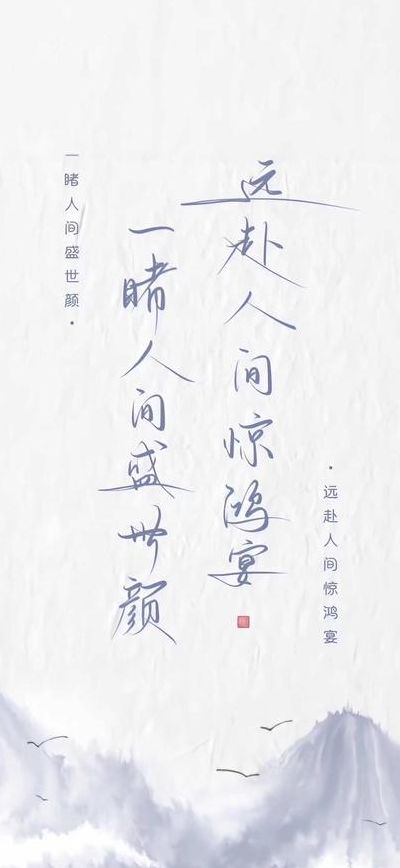 远赴人间惊鸿宴
一睹人间盛世颜
·远赴人间惊鸿宴
一睹人间盛世颜·